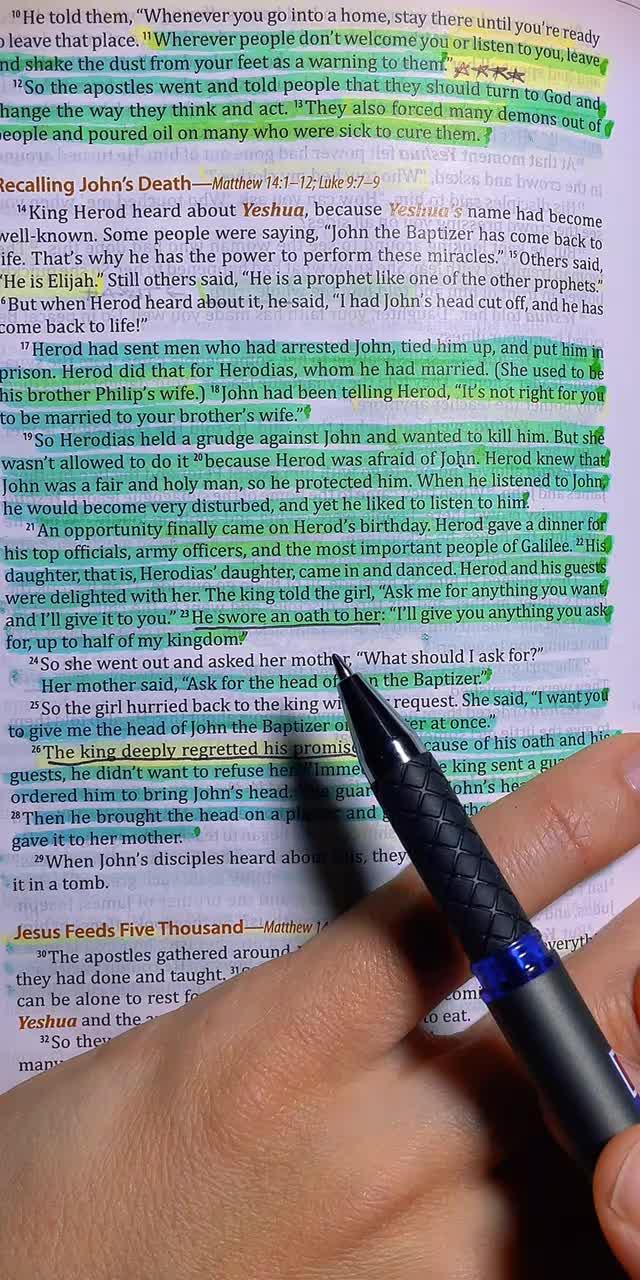 10 He told them, “Whenever you go into a home, stay there until you’re ready
leave that place. 11 Wherever people don’t welcome you or listen to you, leave
shake the dust from your feet as a warning to them.”
12 So the apostles went and told people that they should turn to God and
the way they think and act. 13 They also forced many demons out of
and poured oil on many who were sick to cure them.
Recalling John’s Death—Matthew 14:1–12; Luke 9:7–9
14 King Herod heard about Yeshua, because Yeshua’s name had become
well-known. Some people were saying, “John the Baptizer has come back to
life. That’s why he has the power to perform these miracles.” 15 Others said,
“He is Elijah.” Still others said, “He is a prophet like one of the other prophets.”
But when Herod heard about it, he said, “I had John’s head cut off, and he has
come back to life!”
17 Herod had sent men who had arrested John, tied him up, and put him in
prison. Herod did that for Herodias, whom he had married. (She used to be
his brother Philip’s wife.) 18 John had been telling Herod, “It’s not right for you
to be married to your brother’s wife.”
19 So Herodias held a grudge against John and wanted to kill him. But she
wasn’t allowed to do it 20 because Herod was afraid of John. Herod knew that
John was a fair and holy man, so he protected him. When he listened to John,
he would become very disturbed, and yet he liked to listen to him.
21 An opportunity finally came on Herod’s birthday. Herod gave a dinner for
his top officials, army officers, and the most important people of Galilee. 22 His
daughter, that is, Herodias’ daughter, came in and danced. Herod and his guests
were delighted with her. The king told the girl, “Ask me for anything you want,
and I’ll give it to you.” 23 He swore an oath to her: “I’ll give you anything you ask
for, up to half of my kingdom.”
24 So she went out and asked her mother, “What should I ask for?”
Her mother said, “Ask for the head of the Baptizer.”
25 So the girl hurried back to the king request. She said, “I want you
to give me the head of John the Baptizer at once.”
26 The king deeply regretted his promise. cause of his oath and his
guests, he didn’t want to refuse her. the king sent a
ordered him to bring John’s head. John’s
28 Then he brought the head on a and
gave it to her mother.
29 When John’s disciples heard about this, they
it in a tomb.
Jesus Feeds Five Thousand—Matthew
30 The apostles gathered around
they had done and taught.
can be alone to rest
Yeshua and the to eat.
32 So they